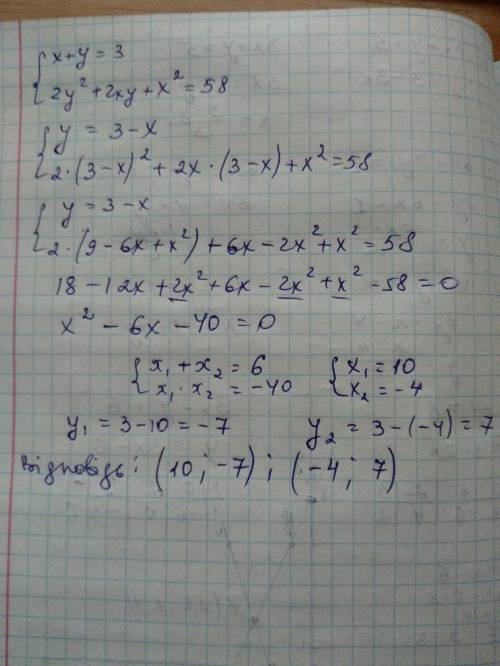 { x+y = 3
2y² + 2xy + x² = 58
{ y = 3-x
2·(3-x)² + 2x·(3-x) + x² = 58
{ y = 3-x
2·(9-6x+x²) + 6x - 2x² + x² = 58
18 - 12x + 2x² + 6x - 2x² + x² - 58 = 0
x² - 6x - 40 = 0
{ x₁ + x₂ = 6 { x₁ = 10
x₁ · x₂ = -40 x₂ = -4
y₁ = 3-10 = -7 y₂ = 3-(-4) = 7
Відповідь: (10; -7); (-4; 7)